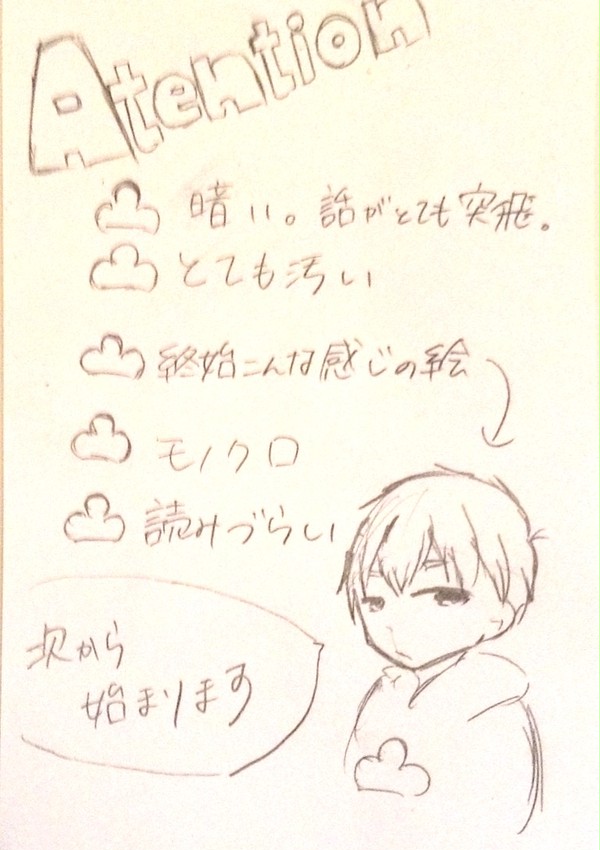 Atention
暗い。話がとても突飛。
とても汚い
終始こんな感じの絵
モノクロ
読みづらい
次から
始まります